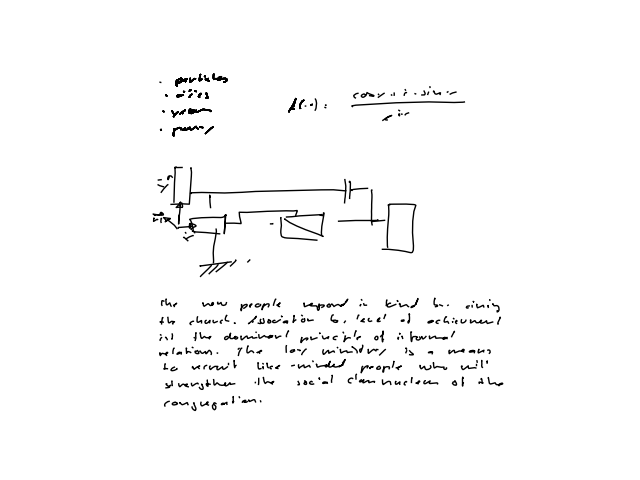 · particles
· cities
· penny
The new people respond in kind by. siving
th church. Association by level of achievement
ist the dominant principle of informal
relations. The lay ministry is a means
to recruit like-minded people who will
strengthen the social of the
congregation.